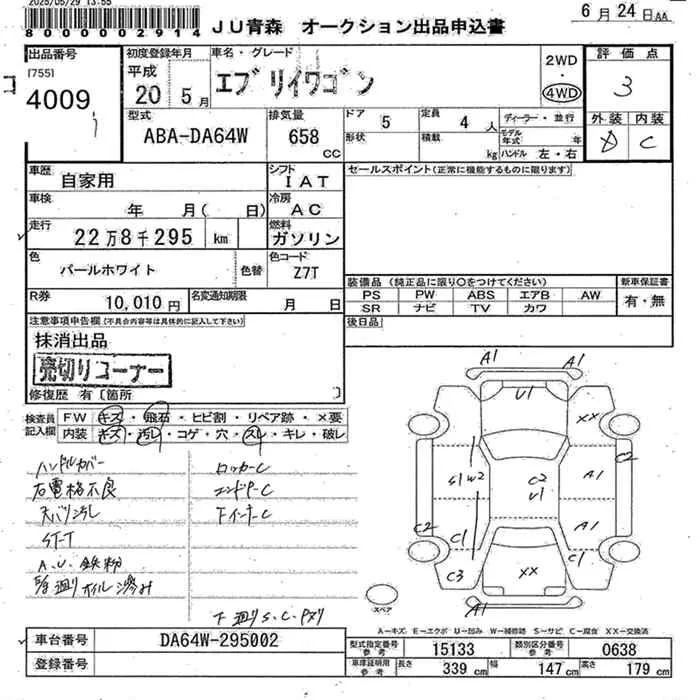 2025/05/29 13:55
8000002914
JU青森 オークション出品申込書
6月24日
出品番号
[755]
4009
初度登録年月
平成
20 5月
車名・グレード
エブリイワゴン
2WD
・
4WD
評価点
3
外装 内装
D C
型式
ABA-DA64W
排気量
658
CC
ドア
5
定員
4 人
形状
積載
kg
ディーラー・並行
モデル
年式 年
ハンドル 左・右
車歴
自家用
シフト
IAT
セールスポイント(正常に機能するものに限ります)
車検
年 月( 日)
冷房
AC
走行
22万8千295 km
燃料
ガソリン
色
パールホワイト
色替
色コード
Z7T
装備品(純正品に限り○をつけてください)
新車保証書
PS PW ABS エアB AW
SR ナビ TV カワ
有・無
R券
10,010円
名変通知期限
月 日
後日品
注意事項申告欄(不具合内容等は具体的に記入して下さい)
抹消出品
売切りコーナー
修復歴 有〔箇所 〕
検査員
記入欄
FW キズ・飛石・ヒビ割・リペア跡・×要
内装 キズ・汚レ・コゲ・穴・スレ・キレ・破レ
ハンドルカバー
ロッカーC
右電格不良
エンドP-C
天バリ汚し
下インナーC
ST-T
A.U.鉄粉
下廻りS.C.
A1 A1
U1
XX
C2
S1 W2
C2
U1
A1
A1
C2
C1
C1
C3
XX
A1
スペア
A-キズ E-エクボ U-凹み W-補修跡 S-サビ C-腐食 XX-交換済
車台番号
DA64W-295002
登録番号
型式指定番号
参考
15133
類別区分番号
参考
0638
車庫証明用
参考
長さ
339 cm
幅
147 cm
高さ
179 cm